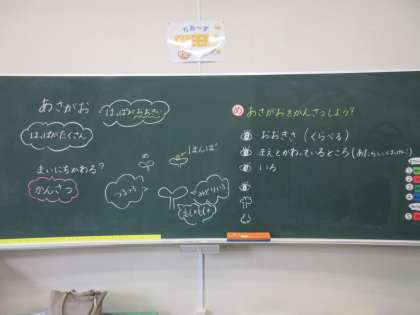 あさがお
はっぱがおおきい
はっぱがたくさん
まいにちかわる?
かんさつ
め
ほんば
つるつる
みどりいろ
め あさがおをかんさつしよう!
おおきさ(くらべる)
まえとかわっているところ(あたらしい
いろ